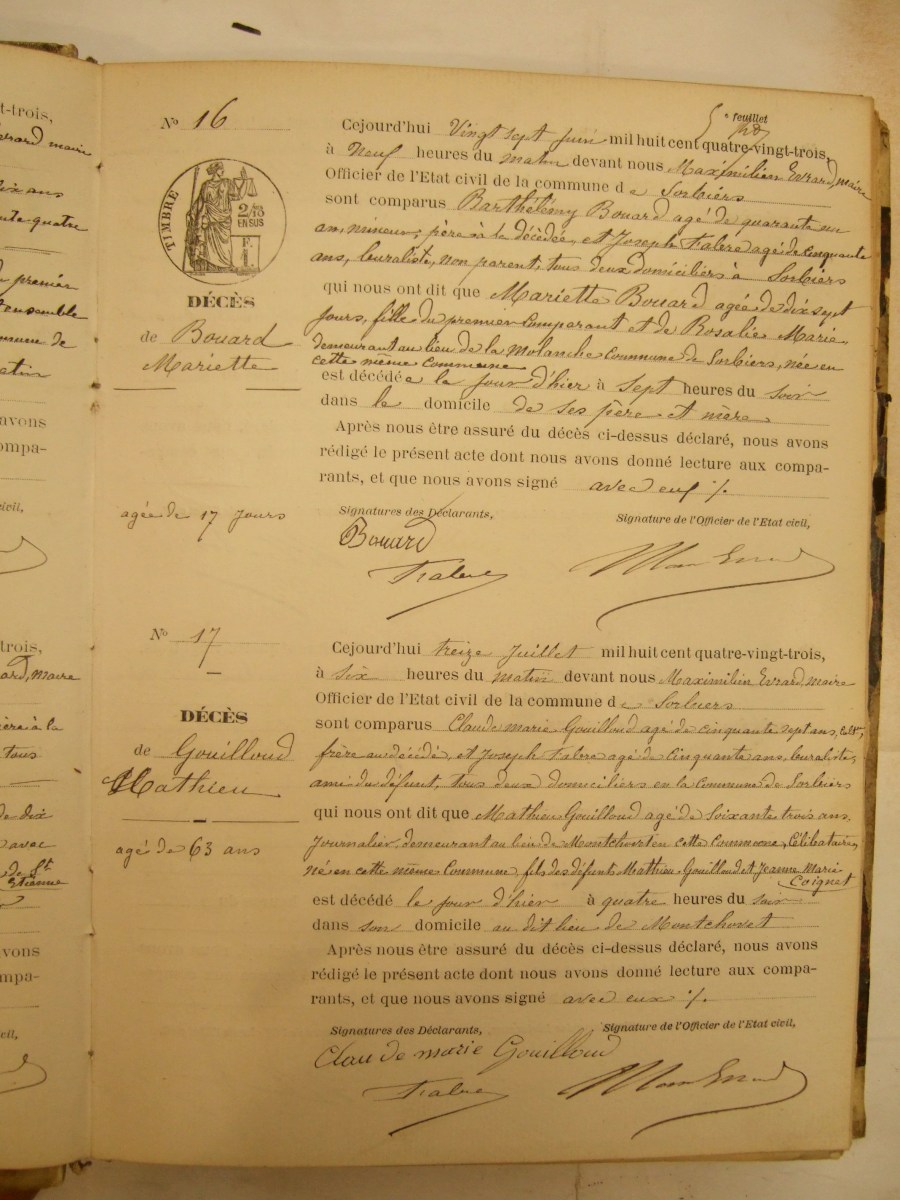 t-trois,
Evrard, maire
dix ans
quatre
premier
l'ensemble
commune de
avons
ompa-
civil,
trois,
ard, maire
à la
tous
de dix
avec
de St
Etienne
vons
mpa-
civil,
5e feuillet
No 16
TIMBRE
2/10
EN SUS
F.
1.
DÉCÈS
de Bouard
Mariette
agée de 17 jours
Cejourd'hui Vingt sept Juin mil huit cent quatre-vingt-trois,
à Neuf heures du matin devant nous Maximilien Evrard, maire
Officier de l'Etat civil de la commune de Sorbiers
sont comparus Barthélémy Bouard agé de quarante un
an, mineur, père à la décédée, et Joseph Fabre agé de cinquante
ans, buraliste, non parent, tous deux domiciliers à Sorbiers
qui nous ont dit que Mariette Bouard agée de dix sept
jours, fille du premier comparant et de Rosalie Marie,
demeurant au lieu de la Molanche Commune de Sorbiers, née en
cette même commune
est décédée le jour d'hier à sept heures du soir
dans le domicile de ses père et mère
Après nous être assuré du décès ci-dessus déclaré, nous avons
rédigé le présent acte dont nous avons donné lecture aux compa-
rants, et que nous avons signé avec eux %.
Signatures des Déclarants,
Signature de l'Officier de l'Etat civil,
Bouard
Fabre
Max Evrard
No 17
DÉCÈS
de Gouilloud
Mathieu
agé de 63 ans
Cejourd'hui treize Juillet mil huit cent quatre-vingt-trois,
à six heures du matin devant nous Maximilien Evrard, maire
Officier de l'Etat civil de la commune de Sorbiers
sont comparus Claude marie Gouilloud agé de cinquante sept ans, cultr,
frère au décédé, et Joseph Fabre agé de cinquante ans, buraliste,
ami du défunt, tous deux domiciliers en la commune de Sorbiers
qui nous ont dit que Mathieu Gouilloud agé de Soixante trois ans,
Journalier, demeurant au lieu de Montchovet en cette Commune, Célibataire,
né en cette même Commune, fils des défunts Mathieu Gouilloud et Jeanne Marie
Coignet
est décédé le jour d'hier à quatre heures du soir
dans son domicile au dit lieu de Montchovet
Après nous être assuré du décès ci-dessus déclaré, nous avons
rédigé le présent acte dont nous avons donné lecture aux compa-
rants, et que nous avons signé avec eux %.
Signatures des Déclarants,
Signature de l'Officier de l'Etat civil,
Claude marie Gouilloud
Fabre
Max Evrard